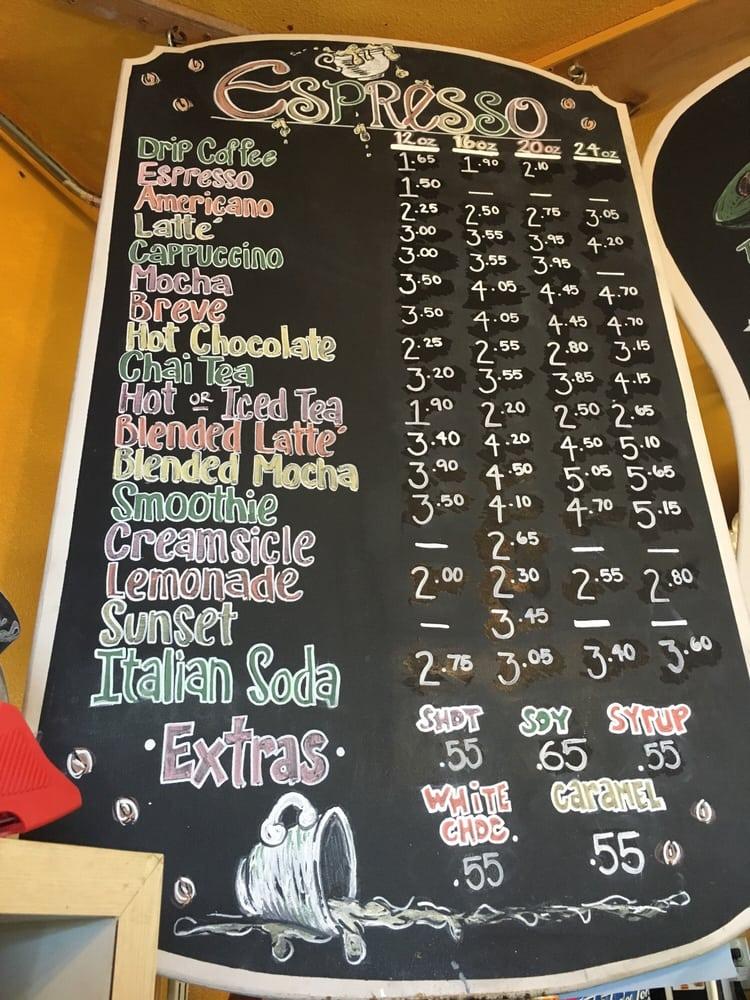 Espresso
12oz 16oz 20oz 24oz
Drip Coffee 1.65 1.90 2.10
Espresso 1.50 — — —
Americano 2.25 2.50 2.75 3.05
Latté 3.00 3.55 3.95 4.20
Cappuccino 3.00 3.55 3.95 —
Mocha 3.50 4.05 4.45 4.70
Breve 3.50 4.05 4.45 4.70
Hot Chocolate 2.25 2.55 2.80 3.15
Chai Tea 3.20 3.55 3.85 4.15
Hot or Iced Tea 1.90 2.20 2.50 2.65
Blended Latté 3.40 4.20 4.50 5.10
Blended Mocha 3.90 4.50 5.05 5.65
Smoothie 3.50 4.10 4.70 5.15
Creamsicle — 2.65 — —
Lemonade 2.00 2.30 2.55 2.80
Sunset — 3.45 — —
Italian Soda 2.75 3.05 3.40 3.60
· Extras ·
SHOT SOY SYRUP
.55 .65 .55
WHITE CHOC. CARAMEL
.55 .55